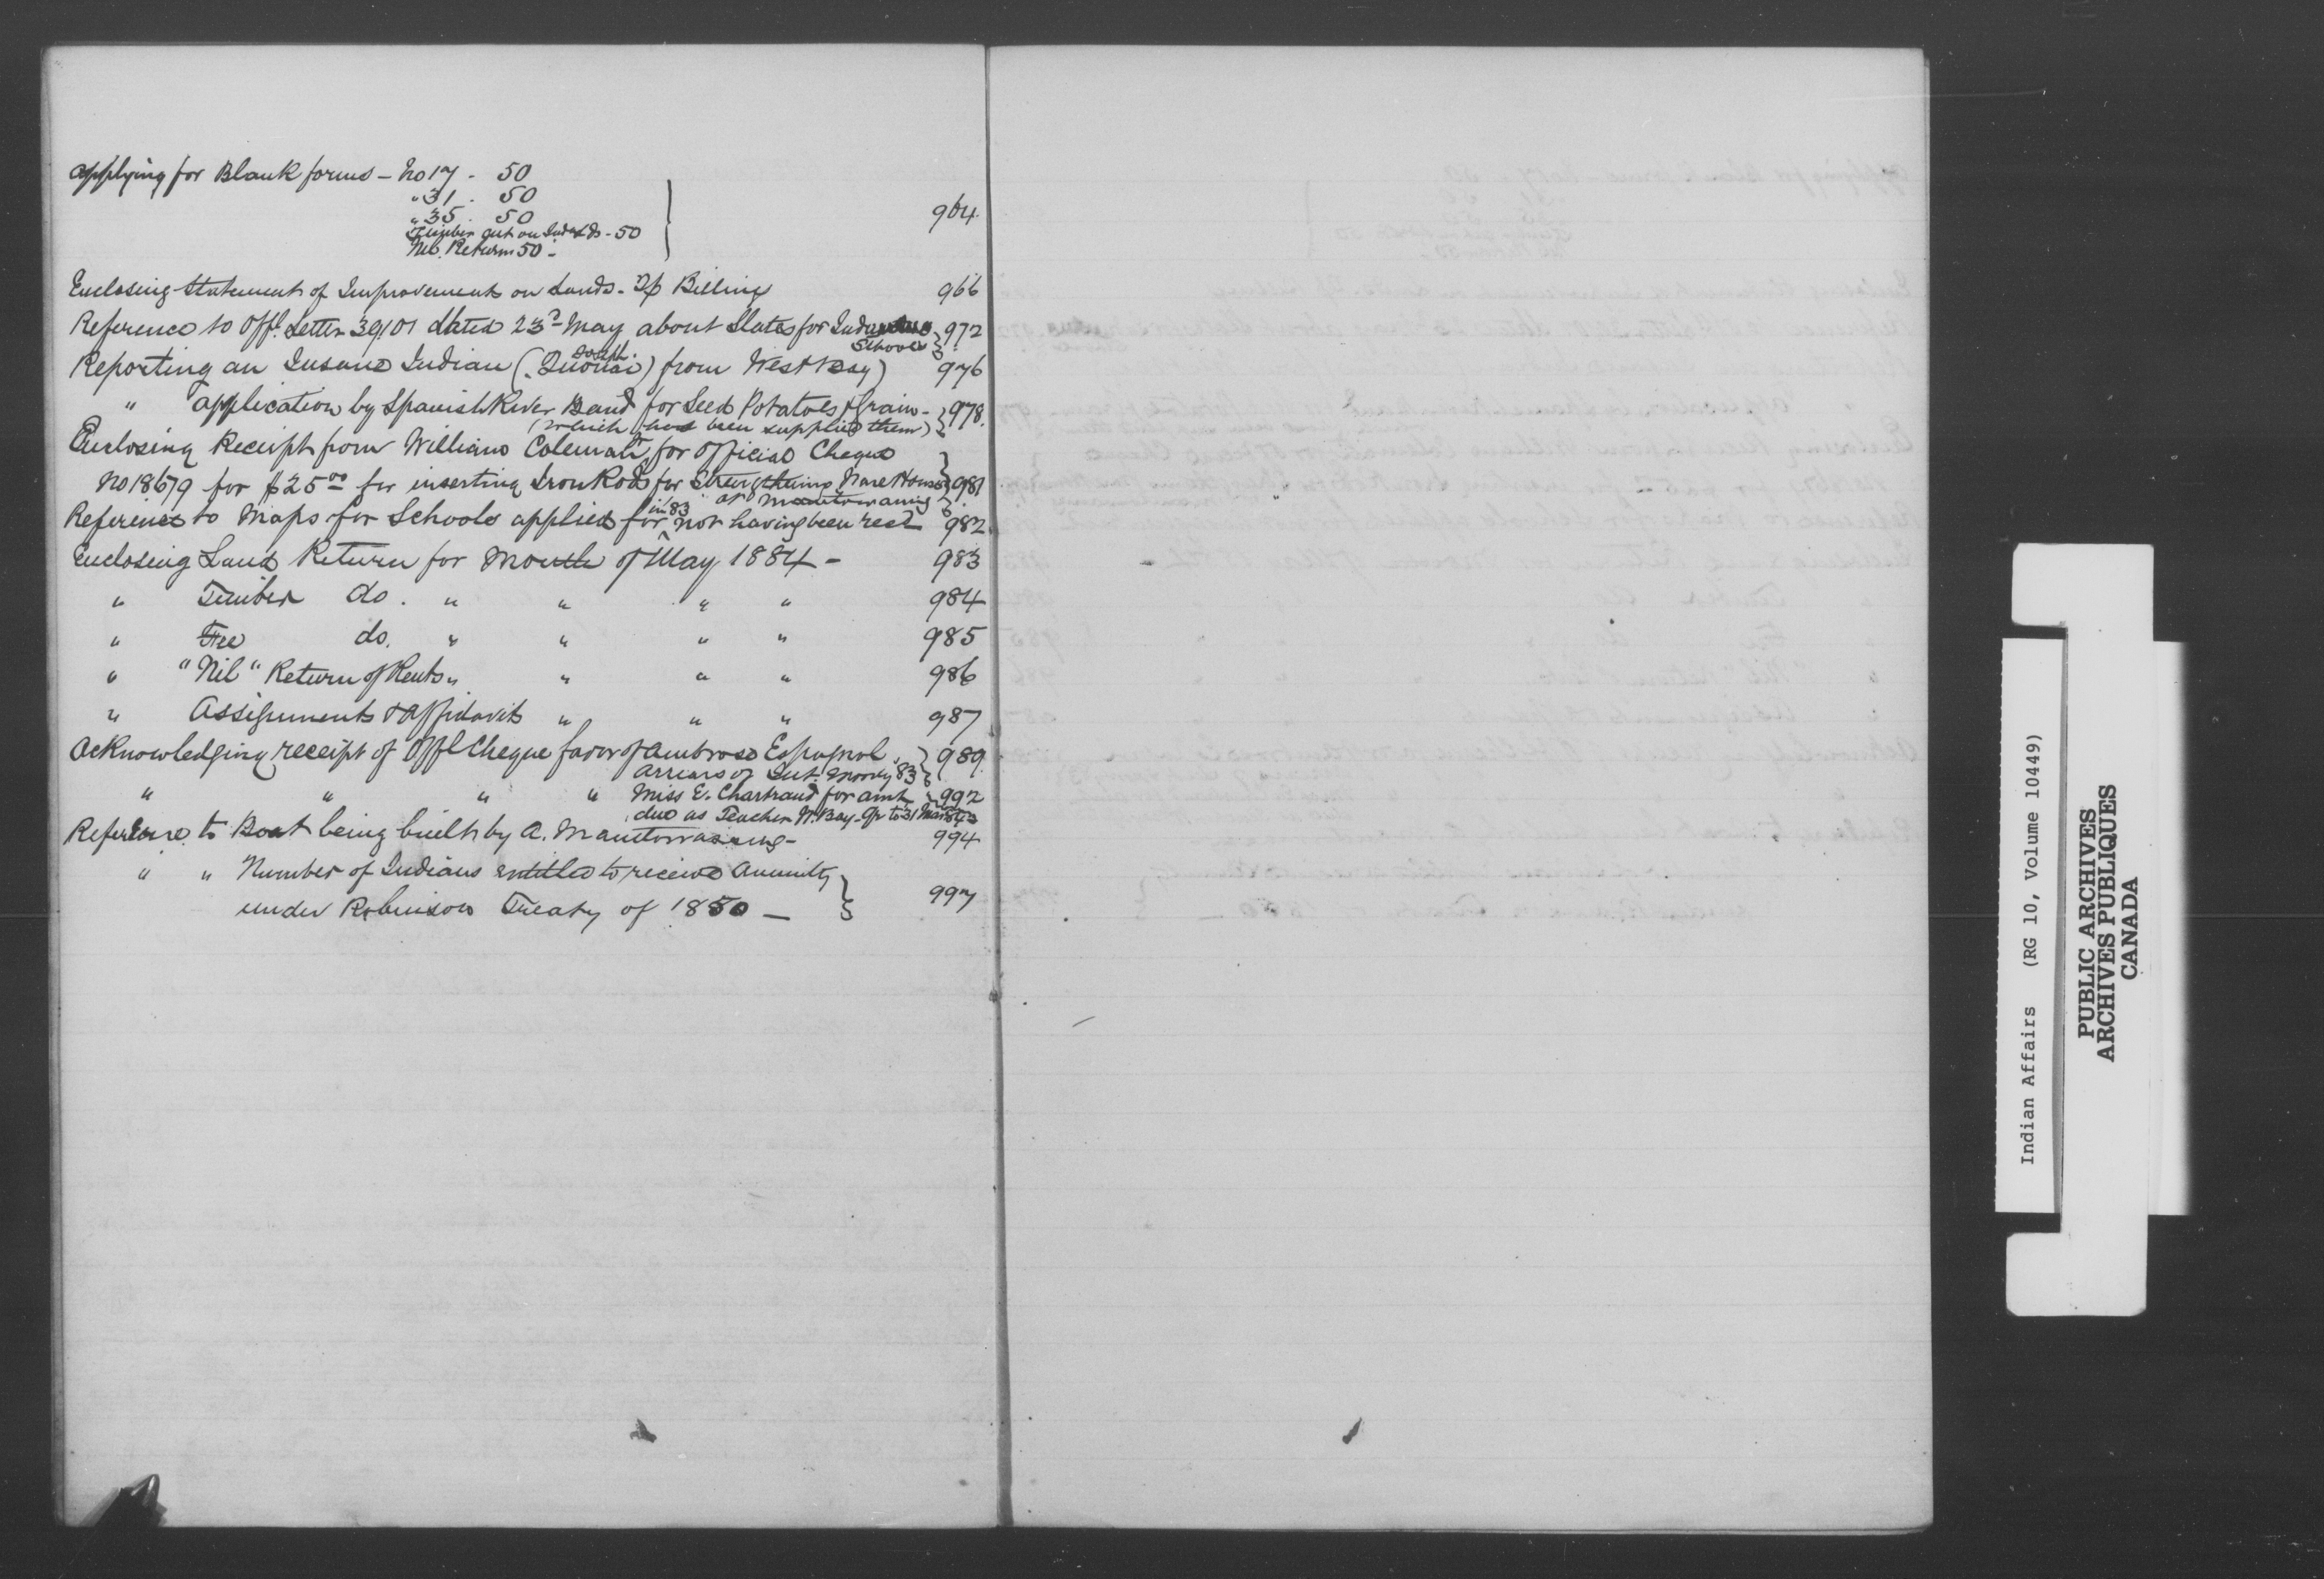 Applying for Blank forms - No 17 - 50
" 31 . 50
" 35 . 50
Timber cut on Ind Lds - 50
Nil. Return 50 -
964
Enclosing Statement of Improvements on Lands - Tp Billings 966
Reference to Offl. Letter 39101 dated 23d May about Slates for Indian
Schools } 972
Reporting an Insane Indian ( ) from West Bay) 976
" application by Spanish River Band for Seed Potatoes & Grain -
(which had been supplied them) } 978.
Enclosing Receipt from William Coleman for Official Cheque
No 18679 for $25 00 for inserting Iron Rods for Strengthening Ware House
at Manitowaning } 981
Reference to Maps for Schools applied for in 83 not having been recd 982
Enclosing Land Return for Month of May 1884 - 983
" Timber do. " " " " 984
" Fee do. " " " " 985
" "Nil" Return of Rents " " " " 986
" Assignments & Affidavits " " " 987
Acknowledging receipt of Offl Cheque favor of Ambrose Espagnol
Arrears of Int. Money 83 } 989
" " " " Miss E. Chartrand for amt
due as Teacher W. Bay - Qr to 31 Mar } 992
Reference to Boat being built by A. Manitowassing - 994
" " Number of Indians entitled to receive Annuity
under Robinson Treaty of 1850 - } 997
Indian Affairs (RG 10, Volume 10449)
PUBLIC ARCHIVES
ARCHIVES PUBLIQUES
CANADA